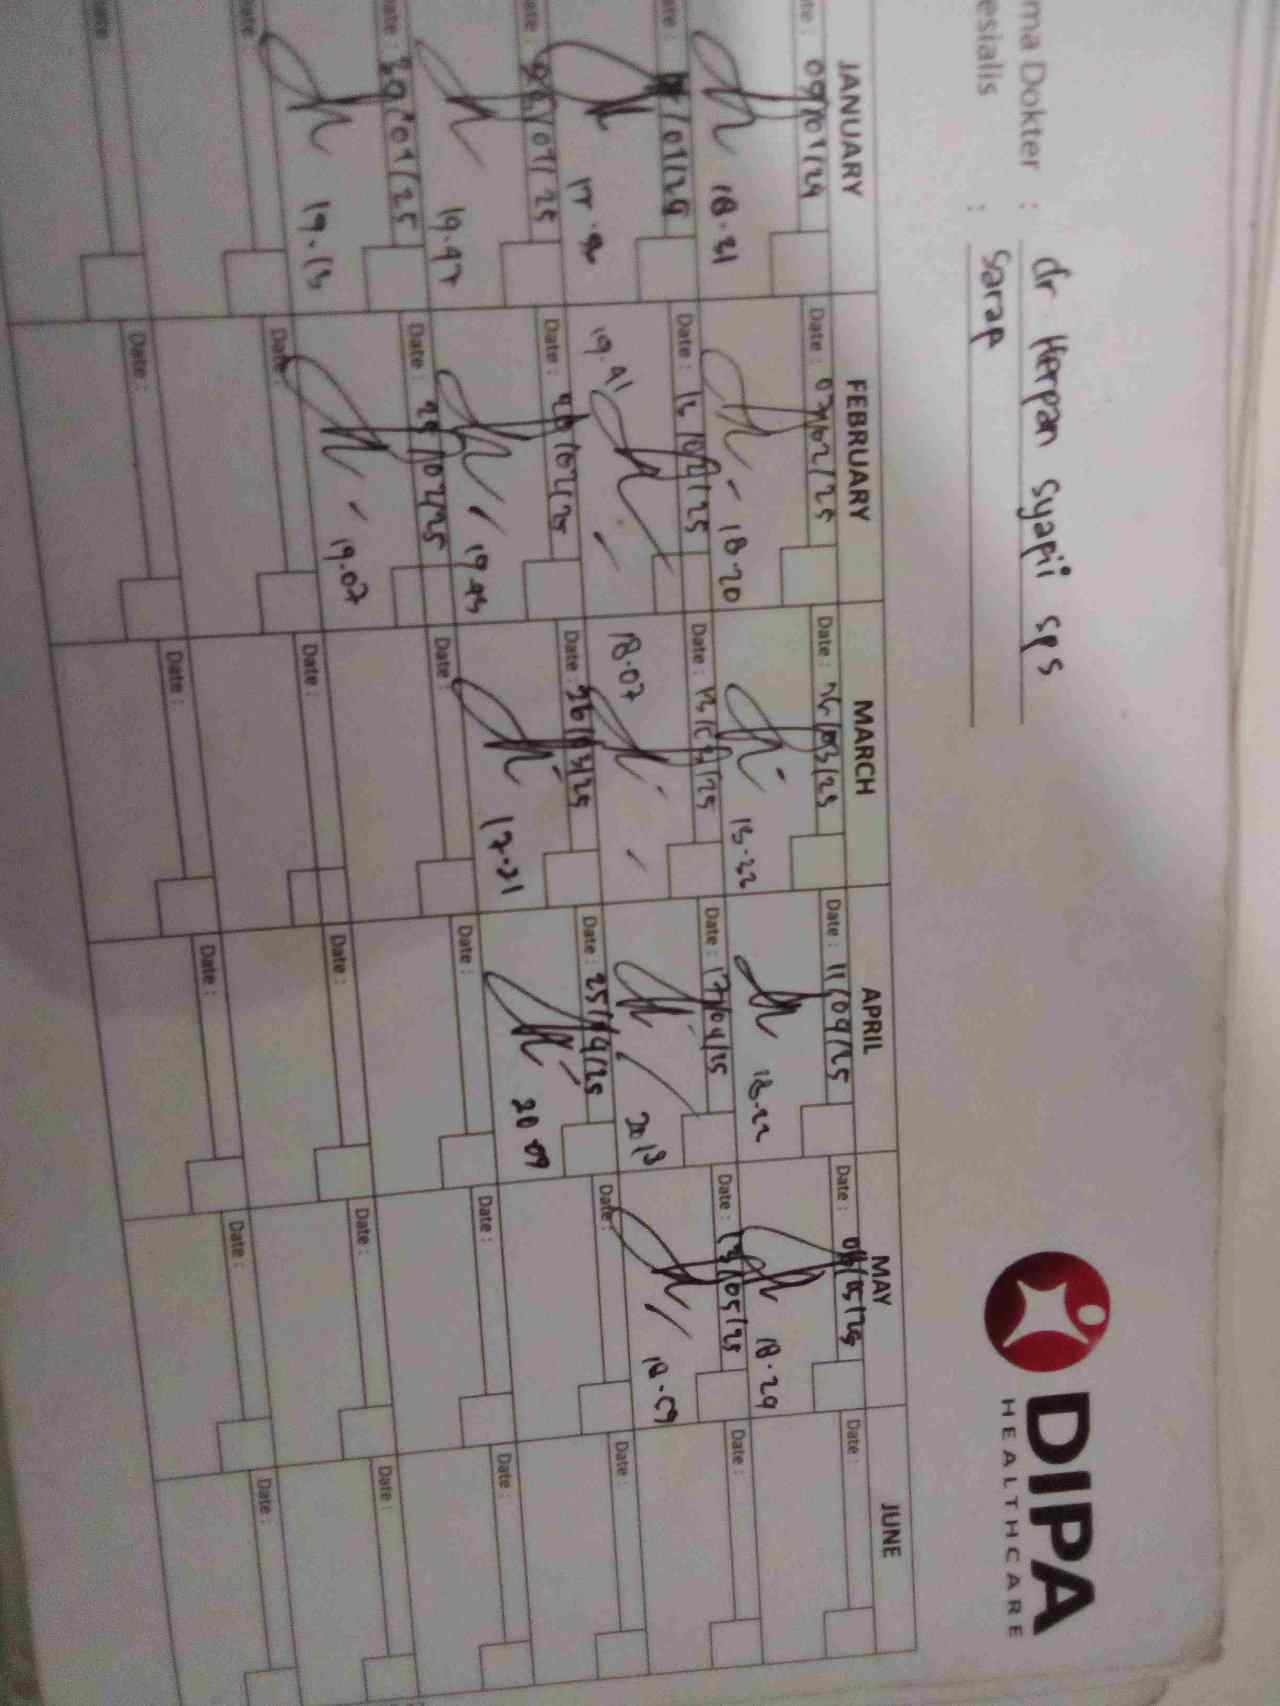 DIPA
HEALTHCARE
ma Dokter : dr Herpan syapii sps
esialis : sarap
JANUARY FEBRUARY MARCH APRIL MAY JUNE
te : 09/01/24 Date : 07/02/25 Date : 06/03/25 Date : 11/04/25 Date : 06/05/25 Date :
18.31 18.20 18.22 18.29
ate : Date : 13/02/25 Date : 13/03/25 Date : 17/04/25 Date : 13/05/25 Date :
19.41 18.07 2013 18.59
ate : /01/25 Date : 20/02/25 Date : 26/03/25 Date : 25/04/25 Date : Date :
19.47 19.43 17.21 20 09
ate : 30/01/25 Date : 25/02/25 Date : Date : Date : Date :
19.13 19.07
ate : Date : Date : Date : Date : Date :
ate : Date : Date : Date : Date : Date :